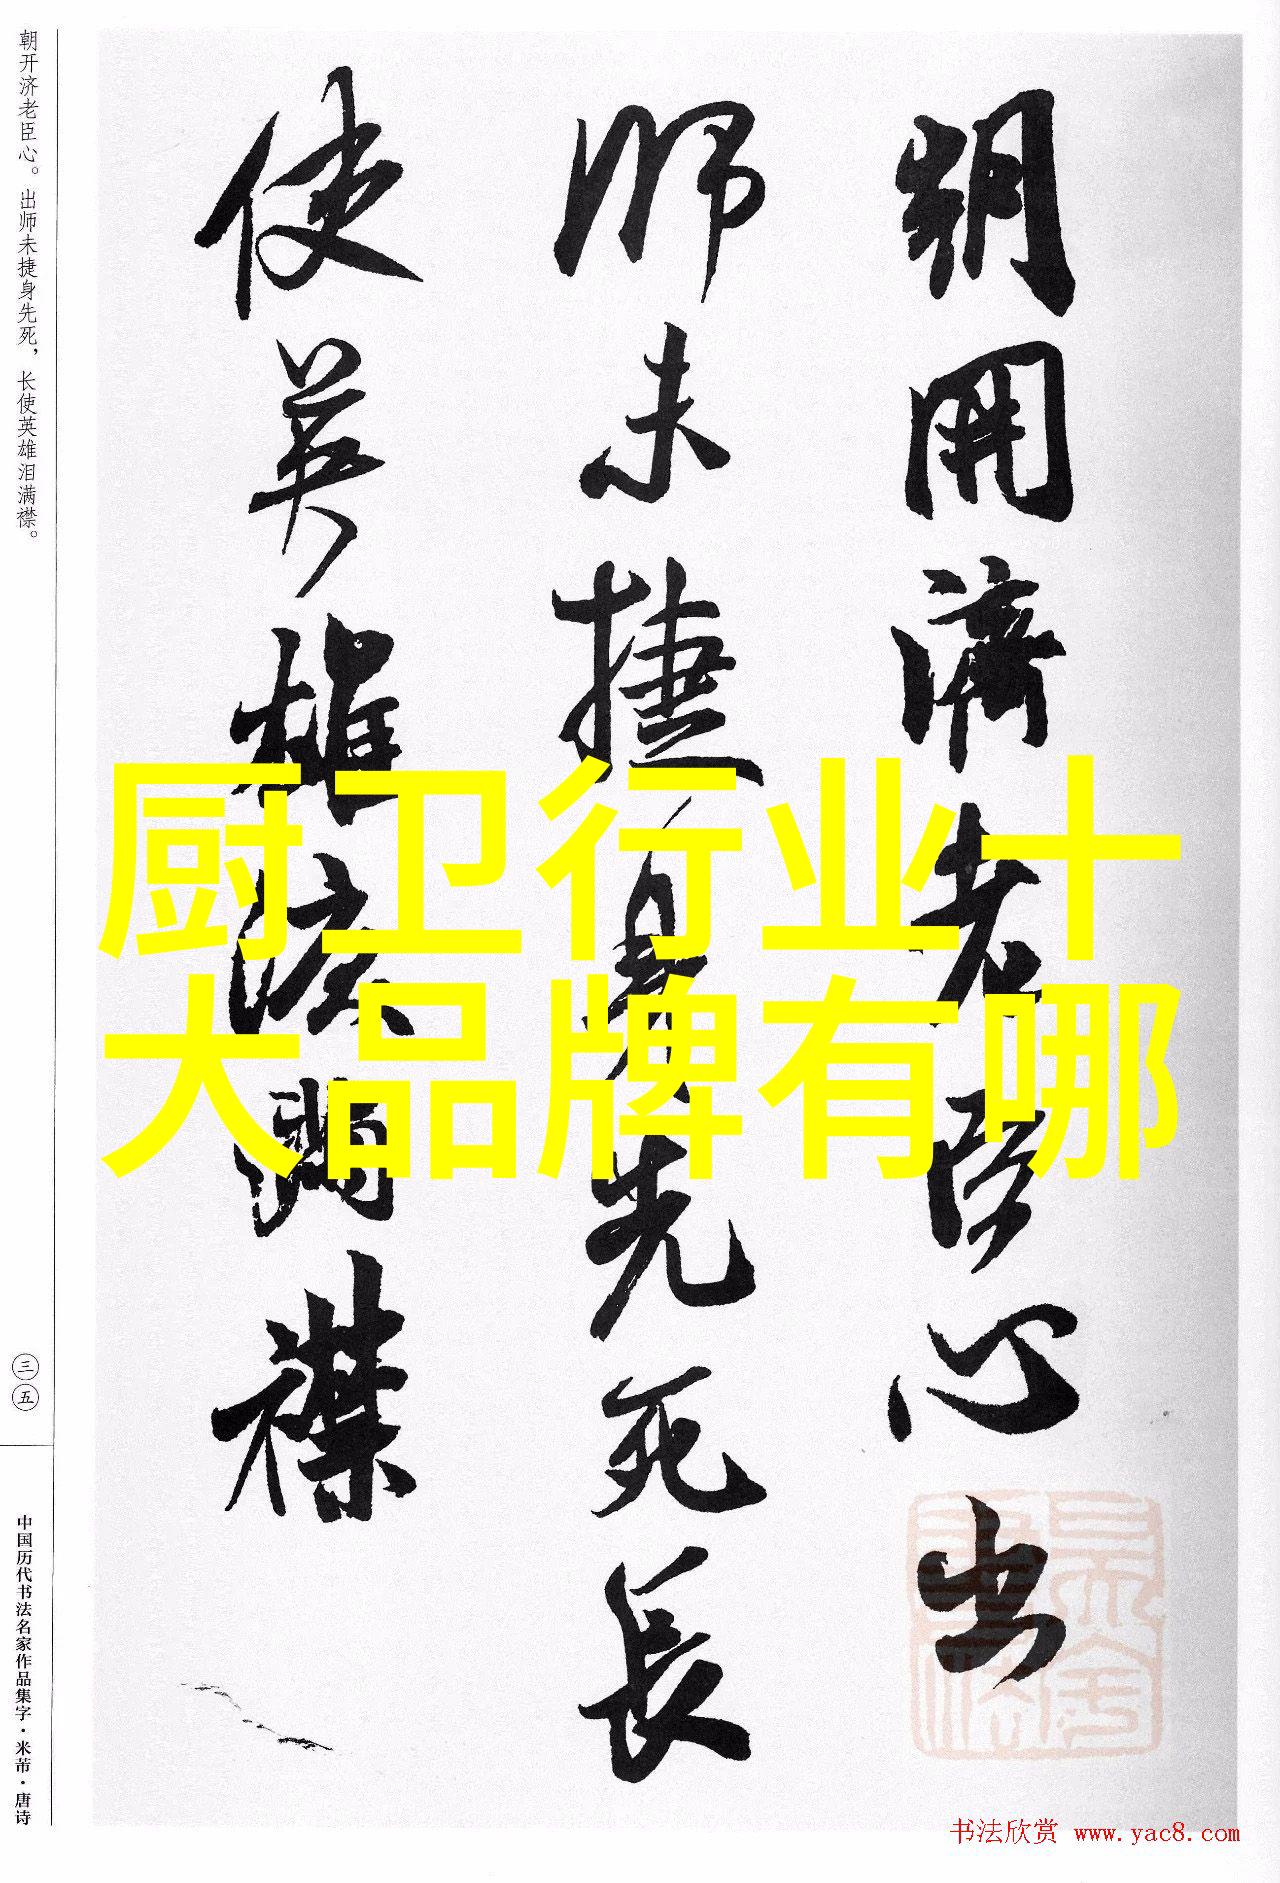 朝开济老臣心。出师未捷身先死，长使英雄泪满襟。
朝開濟老臣心出
師未捷身先死長
使英雄泪满襟
厨卫行业十
大品牌有哪
三五
中国历代书法名家作品集字·米芾·唐诗
书法欣赏 www.yac8.com